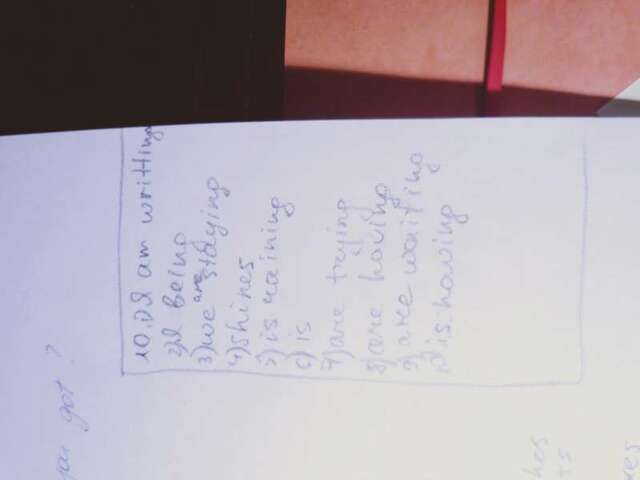 you got ?
10.1) I am writting
2) I being
3) we are staying
4) shines
5) is raining
6) is
7) are trying
8) are having
9) are waiting
10) is having